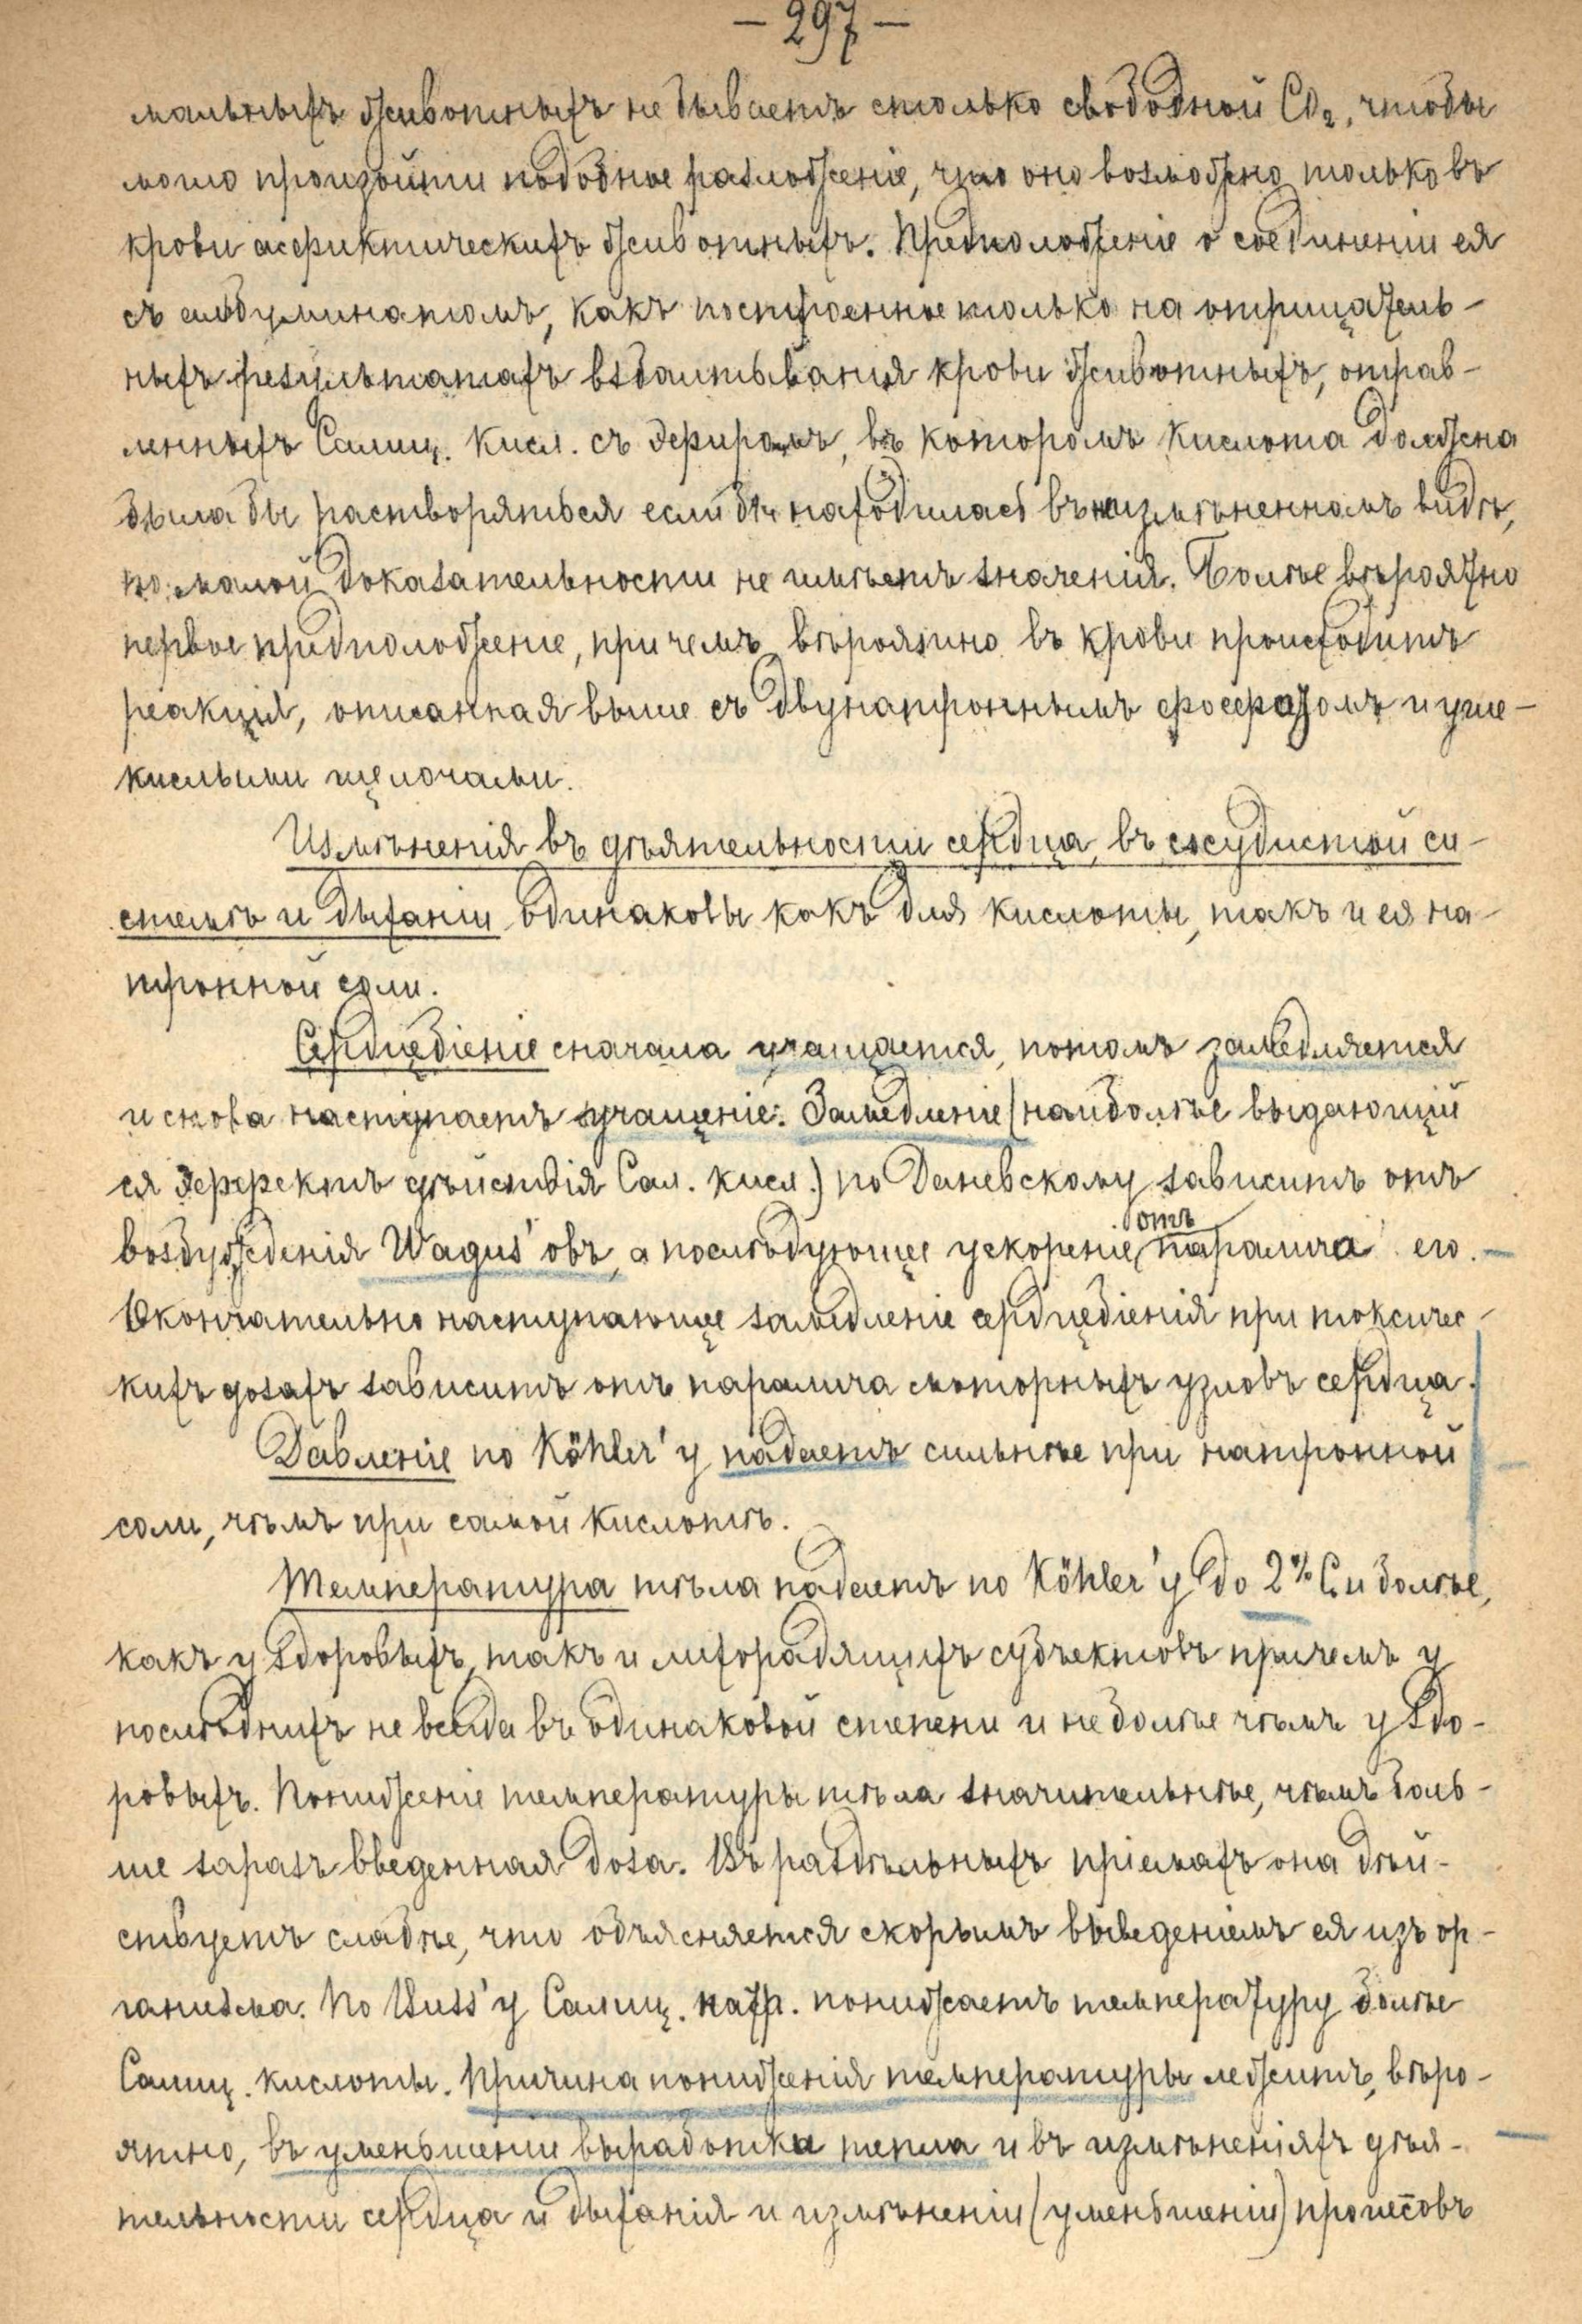 – 297 –
мальныхъ животныхъ не бываетъ столько свободной CO₂, чтобы
могло произойти подобное разложеніе, что оно возможно только въ
крови асфиктическихъ животныхъ. Предположеніе о соединеніи ея
съ альбуминатомъ, какъ построенное только на отрицатель-
ныхъ результатахъ взбалтыванія крови животныхъ, отрав-
ленныхъ Салиц. кисл. съ эфиромъ, въ которомъ кислота должна
была бы растворяться если бы находилась въ неизмѣненномъ видѣ,
по малой доказательности не имѣетъ значенія. Болѣе вѣроятно
первое предположеніе, причемъ вѣроятно въ крови происходитъ
реакція, описанная выше съ двунатроннымъ фосфатомъ и угле-
кислыми щелочами.
Измѣненія въ дѣятельности сердца, въ сосудистой си-
стемѣ и дыханіи одинаковы какъ для кислоты, такъ и ея на-
тронной соли.
Сердцебіеніе сначала учащается, потомъ замедляется
и снова наступаетъ учащеніе. Замедленіе (наиболѣе выдающій
ся эффектъ дѣйствія Сал. кисл.) по Даневскому зависитъ отъ
возбужденія Wagus'овъ, а послѣдующее ускореніе отъ паралича его.
Окончательно наступающее замедленіе сердцебіенія при токсичес-
кихъ дозахъ зависитъ отъ паралича моторныхъ узловъ сердца.
Давленіе по Köhler'у падаетъ сильнѣе при натронной
соли, чѣмъ при самой кислотѣ.
Температура тѣла падаетъ по Köhler'у до 2% C и болѣе,
какъ у здоровыхъ, такъ и лихорадящихъ субъектовъ причемъ у
послѣднихъ не всегда въ одинаковой степени и не болѣе чѣмъ у здо-
ровыхъ. Пониженіе температуры тѣла значительнѣе, чѣмъ боль-
ше заразъ введенная доза. Въ раздѣльныхъ пріемахъ она дѣй-
ствуетъ слабѣе, что объясняется скорымъ выведеніемъ ея изъ ор-
ганизма. По Buss'у Салиц. натр. понижаетъ температуру болѣе
Салиц. кислоты. Причина пониженія температуры лежитъ, вѣро-
ятно, въ уменьшеніи выработки тепла и въ измѣненіяхъ дѣя-
тельности сердца и дыханія и измѣненіи (уменьшеніи) процессовъ